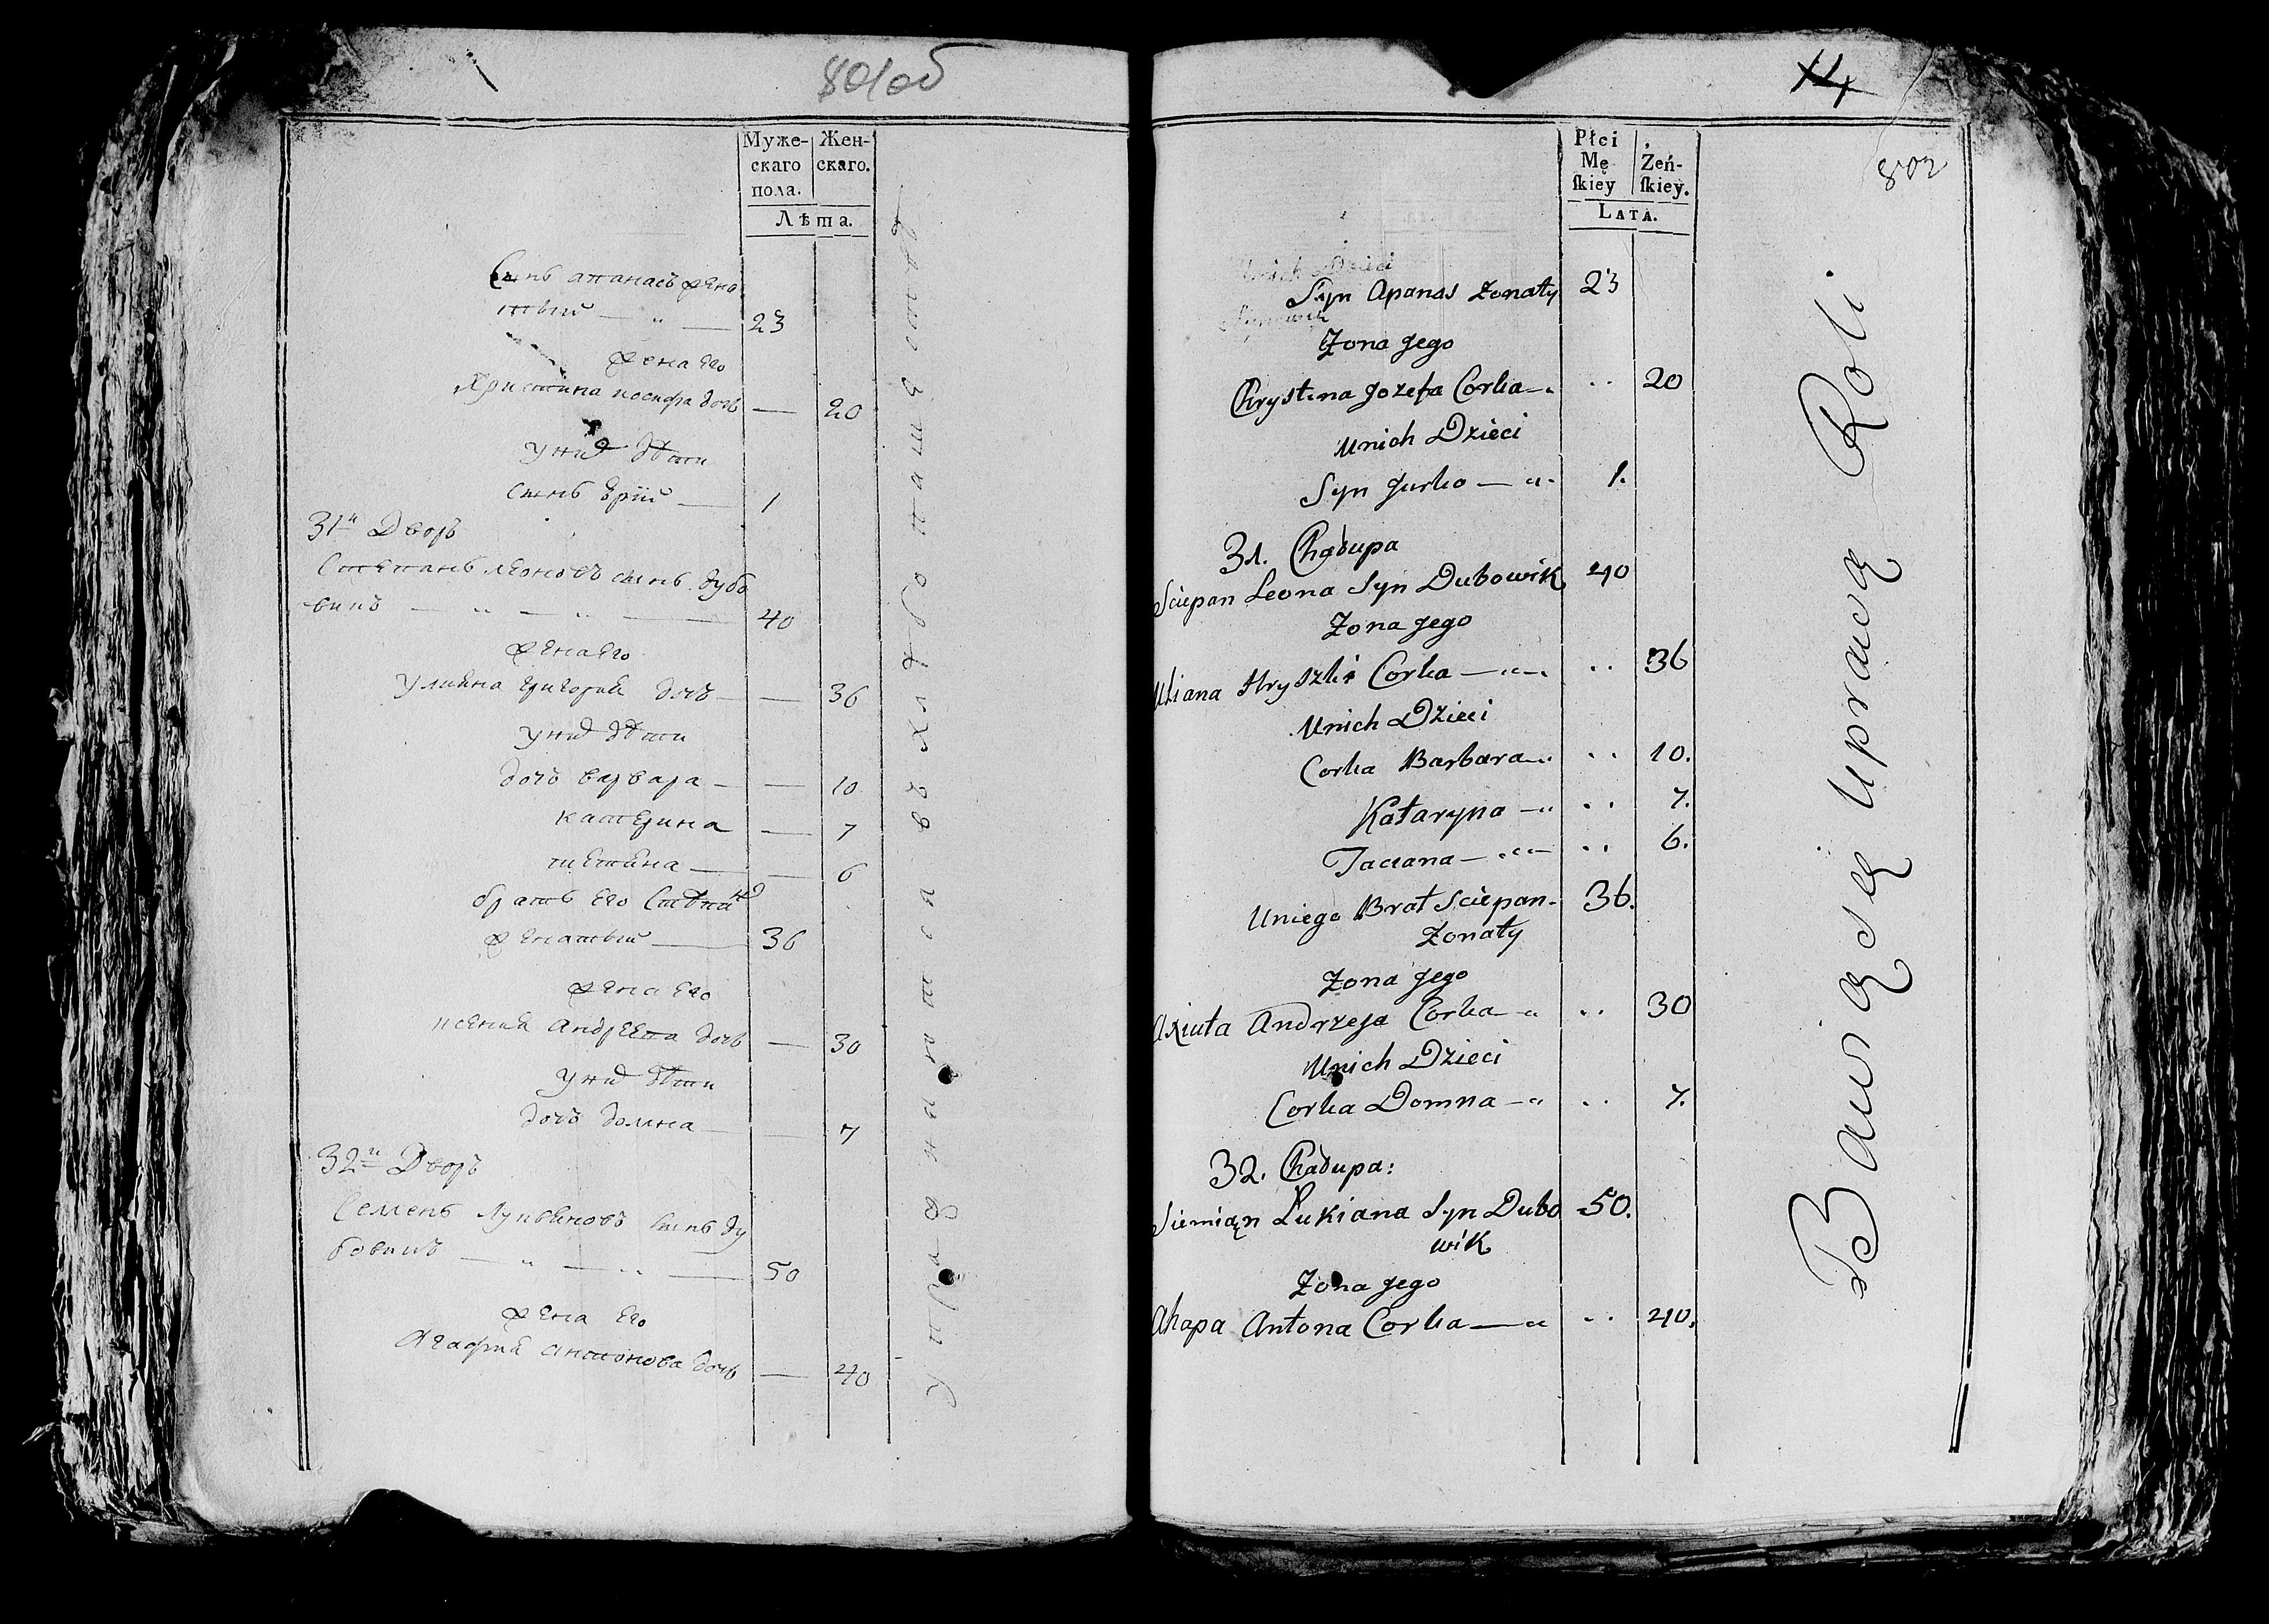 801об
Муже-
скаго
пола.
Жен-
скаго.
Лѣта.
Сынъ апанасъ жена
тый — „ — 23
жена его
Христина иосифа дочь — 20
у них дѣти
сынъ Юрій — 1
31й Дворъ
Степанъ леоновъ сынъ дубо
викъ — „ — „ — 40
жена его
Улияна григория дочь — — 36
у них дѣти
дочь варвара — — 10
катерина — 7
татияна — — 6
братъ его Стѣпан
женатый — 36
жена его
ксения Андреева дочь — 30
у них дѣти
дочь домна — — 7
32й Дворъ
Семенъ Лукьяновъ сынъ ду
бовикъ — „ — „ — 50
жена его
Агафия антонова дочь — 40
14
802
Płci
Mę
ſkiey
Żeń-
ſkiey.
LATA.
Unich Dzieci
Syn Apanas Zonaty 23
Zona Jego
Chrystina Jozefa Corka — „ .. 20
Unich Dzieci
Syn Jurko — „ . 1.
31. Chałupa
Sciepan Leona Syn Dubowik 40
Zona Jego
Uliana Hryszki Corka — „ — .. 36
Unich Dzieci
Corka Barbara — „ .. 10.
Kataryna — „ .. 7.
Taciana — „ — .. 6.
Uniego Brat Sciepan - 36.
Zonaty
Zona Jego
Axiuta Andrzeja Corka — „ .. 30
Unich Dzieci
Corka Domna — „ .. 7.
32. Chałupa:
Siemian Łukiana Syn Dubo 50.
wik
Zona Jego
Ahapa Antona Corka — „ .. 40.
Bawią się Uprawą Roli